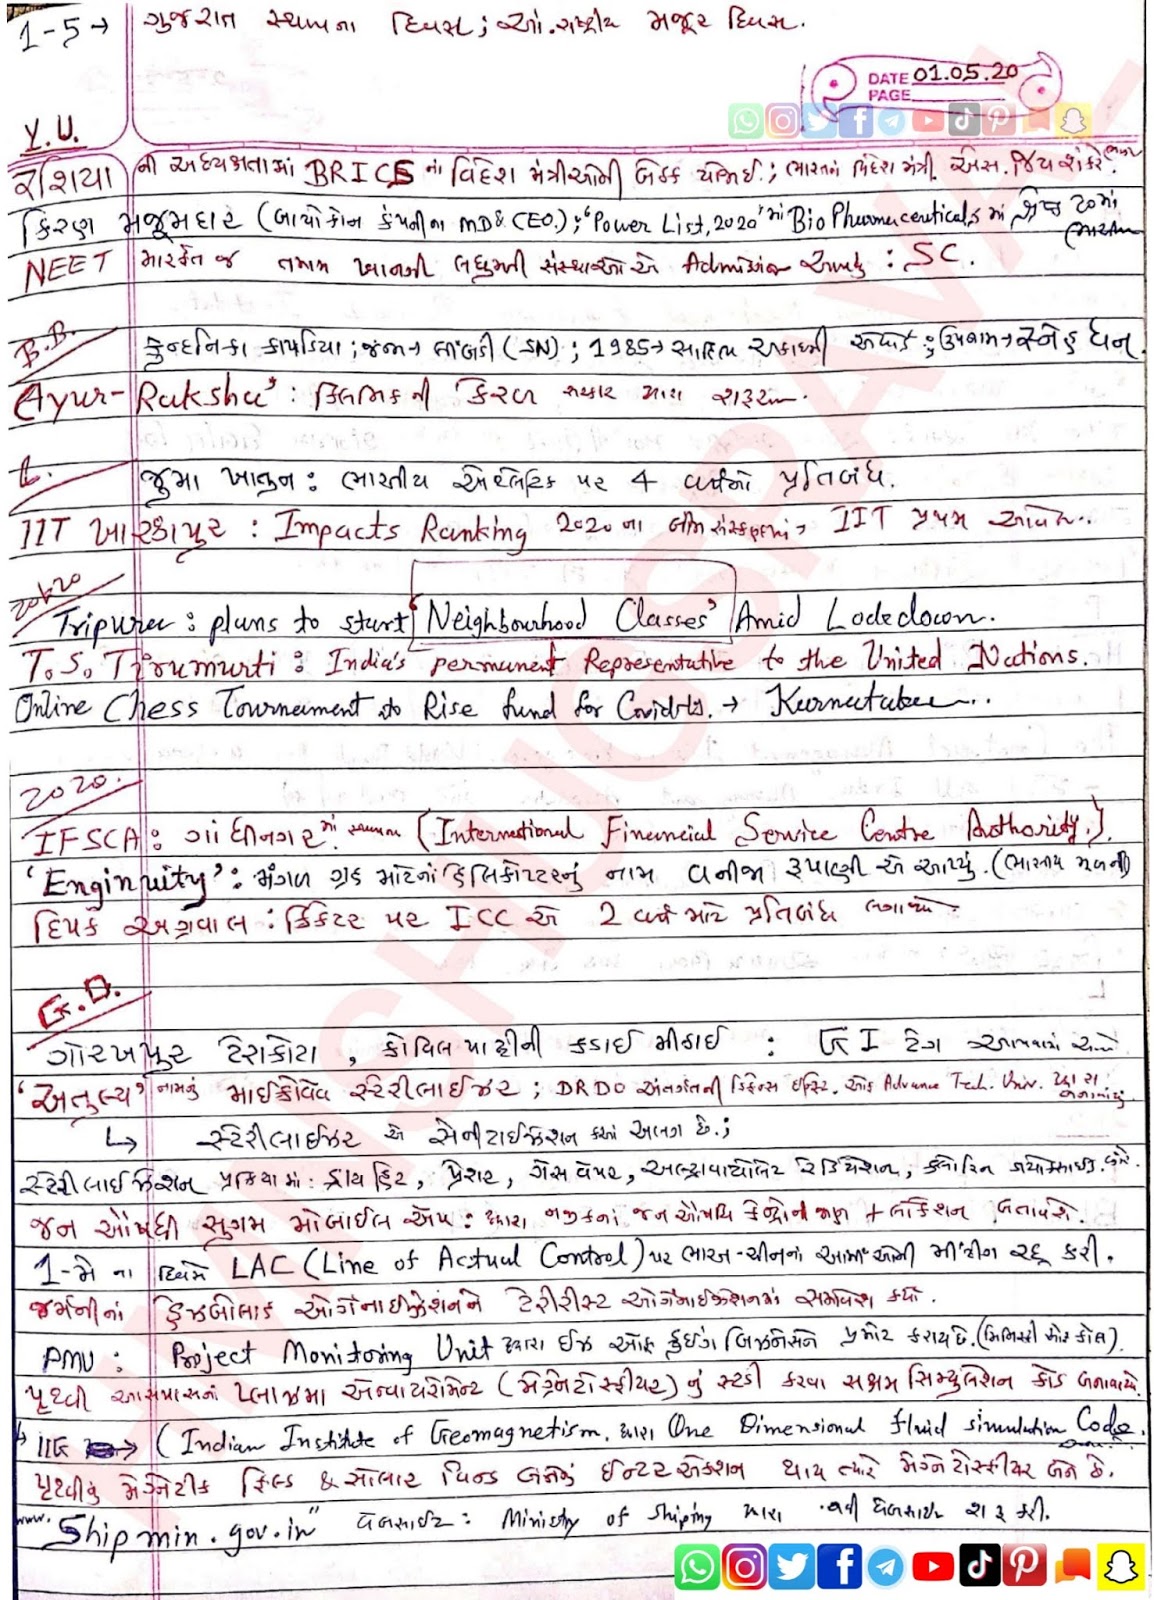 1-5→ ગુજરાત સ્થાપના દિવસ; આં.રાષ્ટ્રીય મજૂર દિવસ.
DATE 01.05.20
PAGE
Y.U.
રશિયા ની અધ્યક્ષતામાં BRICS નાં વિદેશ મંત્રીઓની બેઠક યોજાઈ.; ભારતનાં વિદેશ મંત્રી. એસ. જયશંકર
કિરણ મજૂમદાર (બાયોકોન કંપનીના MD & CEO.); "Power List, 2020" માં Bio Pharmaceuticals માં શ્રેષ્ઠ 20માં
NEET મારફત જ તમામ ખાનગી લઘુમતી સંસ્થાઓ એ Admission આપવું : SC.
B.B.
કુન્દનિકા કાપડિયા ; જન્મ→ લીંબડી (SN) ; 1985→ સાહિત્ય અકાદમી એવોર્ડ ; ઉપનામ→સ્નેહ ધન.
Ayur-Raksha' : ક્લિનિકની કેરળ સરકાર દ્વારા શરૂઆત.
L.
જુમા ખાતુન : ભારતીય એથ્લેટિક પર 4 વર્ષનો પ્રતિબંધ.
IIT ખારકપુર : Impacts Ranking 2020 ના બીજા સંસ્કરણમાં, IIT પ્રથમ
2020
Tripura : plans to start 'Neighbourhood Classes' Amid Lockdown.
T.S. Tirumurti : India's permanent Representative to the United Nations.
Online Chess Tournament to Rise fund for Covid19. → Karnataka...
2020.
IFSCA : ગાંધીનગર માં સ્થાપના (International Financial Service Centre Authority.).
'Enginuity' : મંગળ ગ્રહ માટેનાં હેલિકોપ્ટરનું નામ વનીજા રૂપાણી એ આપ્યું. (ભારતીય મૂળની)
દિપક અગ્રવાલ : ક્રિકેટર પર ICC એ 2 વર્ષ માટે પ્રતિબંધ લગાવ્યો
G.D.
ગોરખપુર ટેરાકોટા, કોવિલપાટ્ટીની કડાઈ મીઠાઈ : GI ટેગ આપવામાં આવ્યો
'અતુલ્ય' નામનું માઈક્રોવેવ સ્ટેરીલાઈઝર ; DRDO અંતર્ગતની ડિફેન્સ ઈન્સ્ટિ. ઓફ Advance Tech. Univ. દ્વારા બનાવાયું
↳ સ્ટેરીલાઈઝર એ સેનીટાઈઝેશન કરતાં અલગ છે.;
સ્ટેરીલાઈઝેશન પ્રક્રિયામાં : ડ્રાય હિટ, પ્રેશર, ગેસ વેપર, અલ્ટ્રાવાયોલેટ રેડિયેશન, ક્લોરિન ડાયોક્સાઈડ વગેરે.
જન ઔષધી સુગમ મોબાઈલ એપ : દ્વારા નજીકનાં જન ઔષધિ કેન્દ્રોની જાણ + લોકેશન બતાવશે.
1-મે ના દિવસે LAC (Line of Actual Control) પર ભારત-ચીનનાં આર્મીઓની મીટીંગ રદ્દ કરી.
જર્મનીનાં હિઝબોલાહ ઓર્ગેનાઈઝેશનને ટેરીરીસ્ટ ઓર્ગેનાઈઝેશનમાં સમાવેશ કર્યો.
PMU : Project Monitoring Unit દ્વારા ઈઝ ઓફ ડુઈંગ બિઝનેસને પ્રમોટ કરાય છે. (મિનિસ્ટ્રી ઓફ કોલ).
પૃથ્વી આસપાસનાં પ્લાઝમા એન્વાયરોમેન્ટ (મેગ્નેટોસ્ફીયર) નું સ્ટડી કરવા સક્ષમ સિમ્યુલેશન કોડ બનાવાયો
↳ IIG → (Indian Institute of Geomagnetism. દ્વારા One Dimensional fluid simulation Code.
પૃથ્વીનું મેગ્નેટીક ફિલ્ડ & સોલાર વિન્ડ બંનેનું ઈન્ટરએક્શન થાય ત્યારે મેગ્નેટોસ્ફીયર બને છે.
"www.Shipmin.gov.in" વેબસાઈટ : Ministry of Shiping દ્વારા નવી વેબસાઈટ શરૂ કરી.
HMSHUGSPAVAL